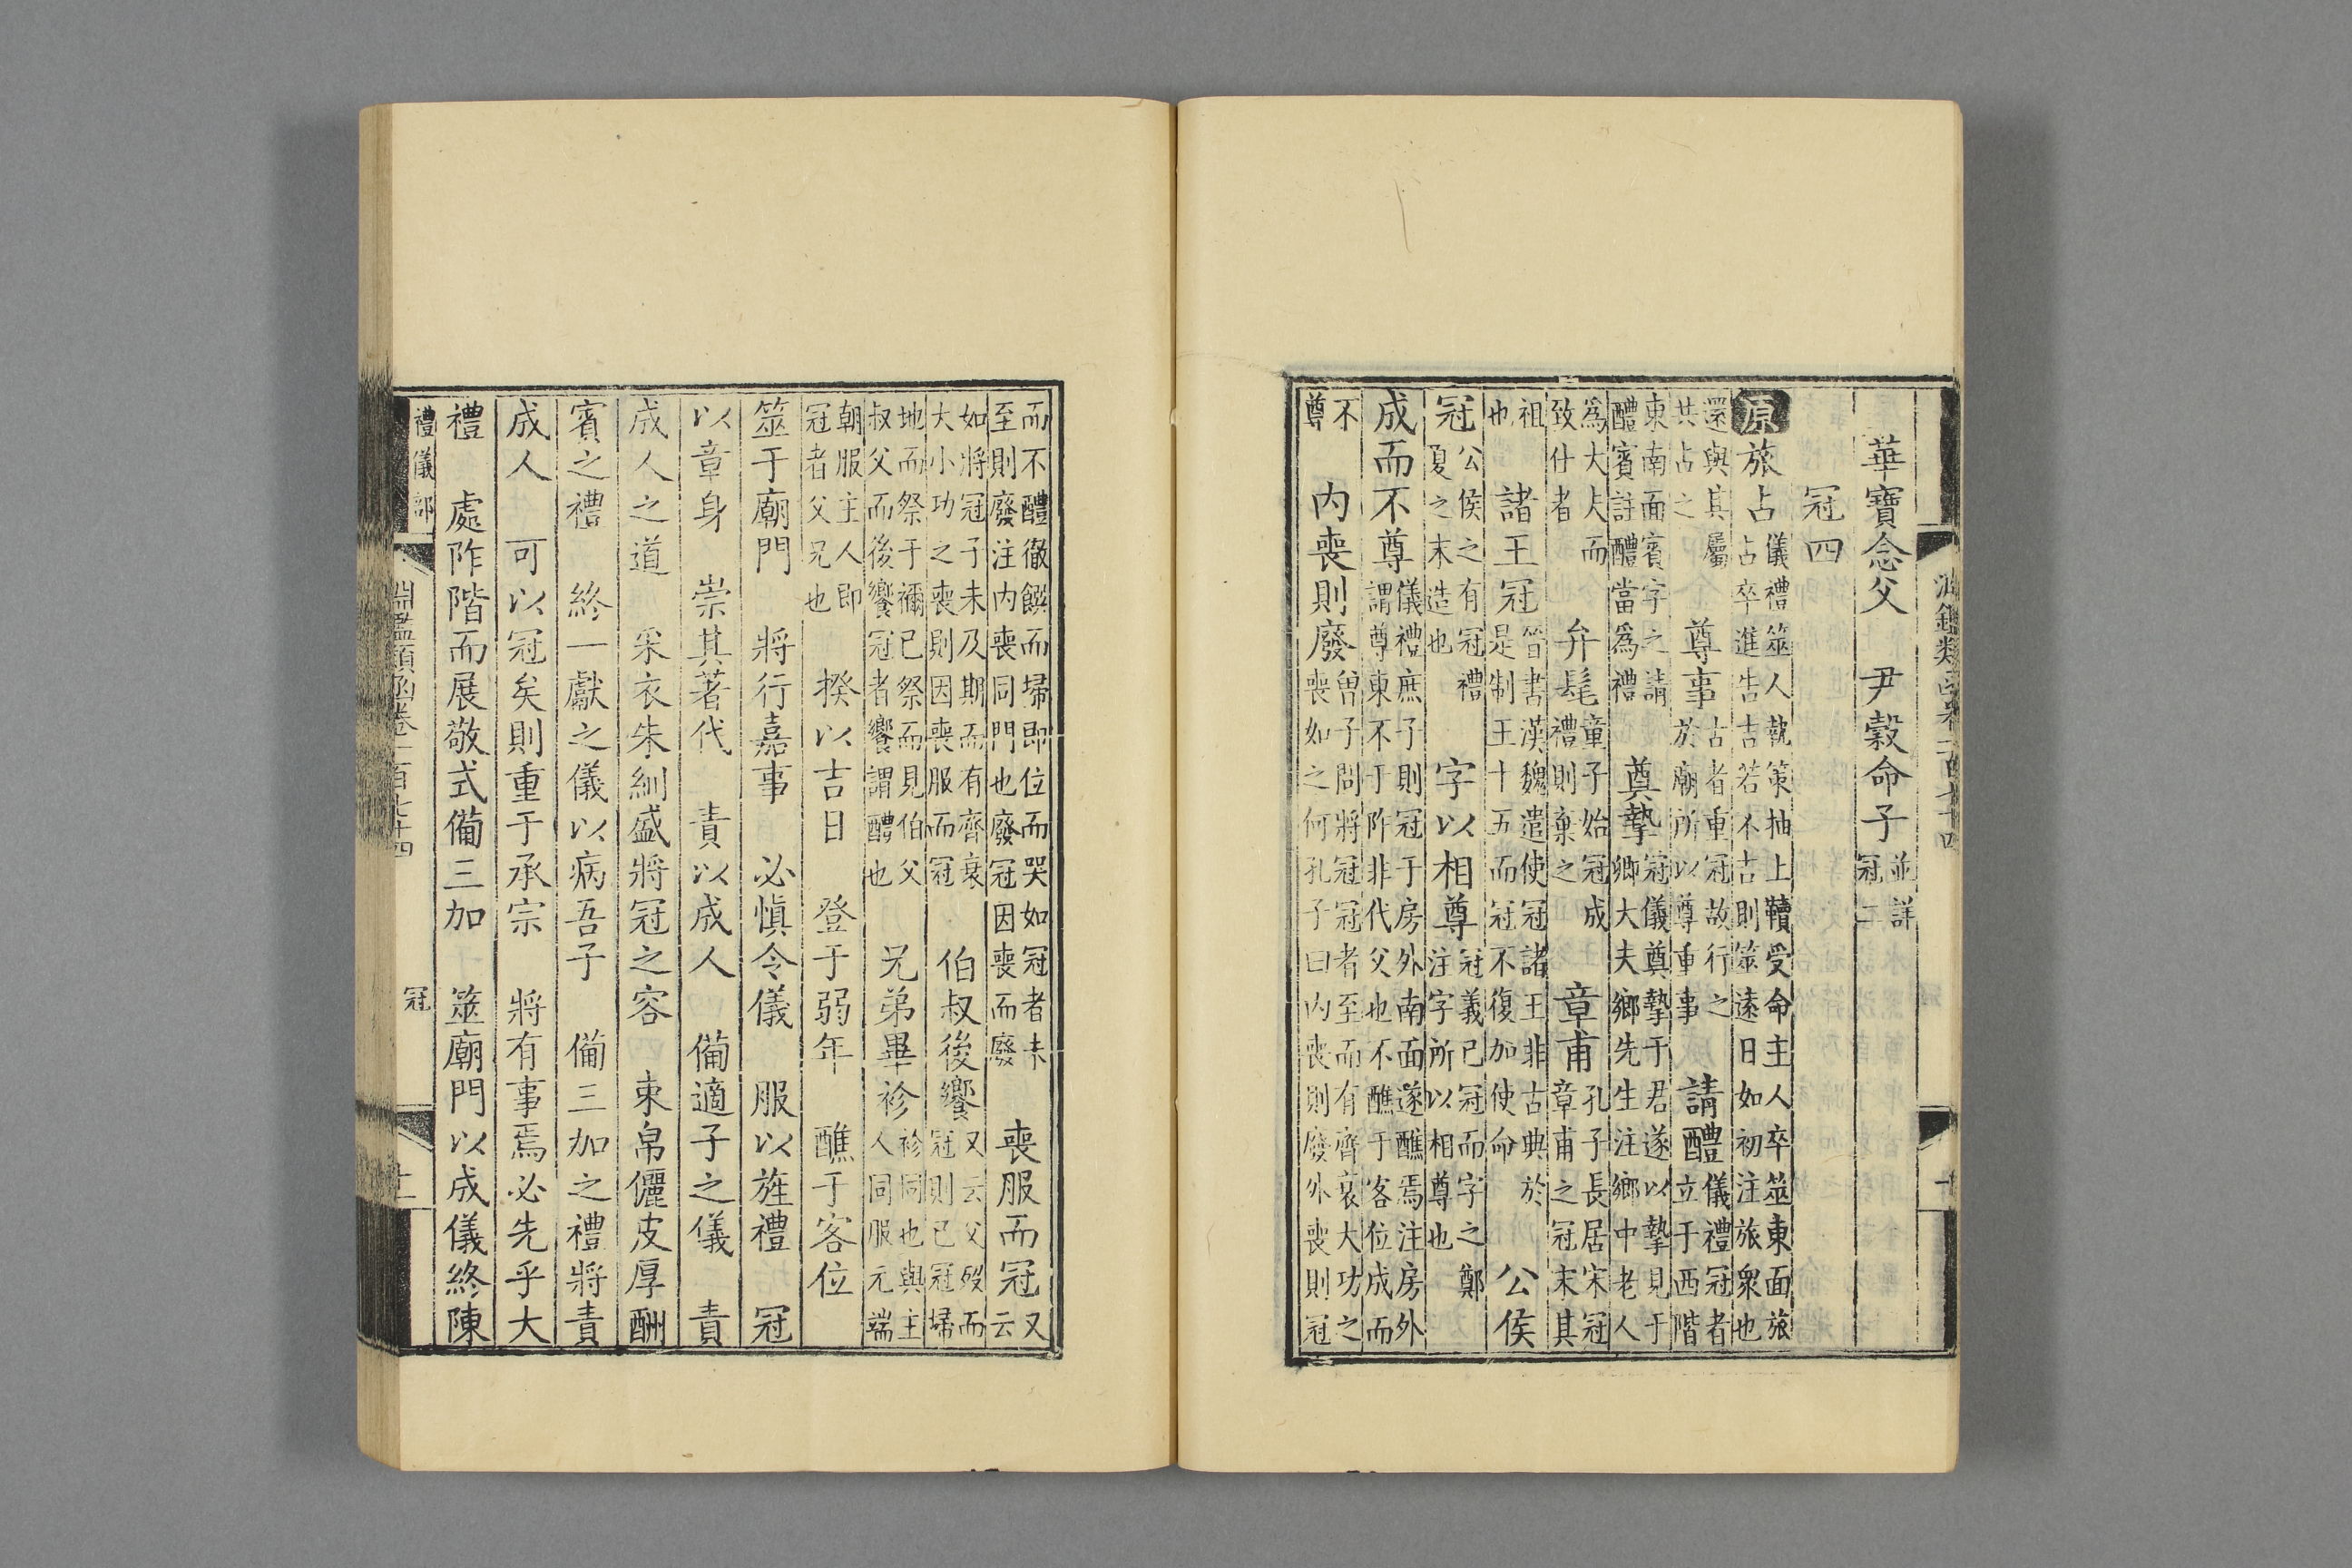 淵鑑類函卷一百七十四
華寶念父　尹穀命子並詳冠二
冠四
原旅占儀禮筮人執策抽上韇受命主人卒筮東面旅占卒進告吉若不吉則筮遠日如初注旅衆也
還與其屬共占之　尊事古者重冠故行之於廟所以尊重事　請醴儀禮冠者立于西階
東南面賓字之請醴賓註醴當爲禮　奠摯冠儀奠摯于君遂以摯見于卿大夫鄉先生注鄉中老人
爲大夫而致仕者　弁髦童子始冠成禮則棄之　章甫孔子長居宋冠章甫之冠末其
祖也　諸王冠晉書漢魏遣使冠諸王非古典於是制王十五而冠不復加使命　公侯
冠公侯之有冠禮夏之末造也　字以相尊冠義已冠而字之鄭注字所以相尊也
成而不尊儀禮庶子則冠于房外南面遂醮焉注房外謂尊東不于阼非代父也不醮于客位成而
不尊　内喪則廢曾子問將冠冠者至而有齊衰大功之喪如之何孔子曰内喪則廢外喪則冠
而不醴徹饌而埽即位而哭如冠者未至則廢注内喪同門也廢冠因喪而廢　喪服而冠又云
如將冠子未及期而有齊衰大小功之喪則因喪服而冠　伯叔後饗又云父歿而冠則已冠埽
地而祭于禰已祭而見伯父叔父而後饗冠者饗謂醴也　兄弟畢袗袗同也與主人同服元端
朝服主人即冠者父兄也　揆以吉日　登于弱年　醮于客位
筮于廟門　將行嘉事　必愼令儀　服以旌禮　冠
以章身　崇其著代　責以成人　備適子之儀　責
成人之道　采衣朱紃盛將冠之容　束帛儷皮厚酬
賓之禮　終一獻之儀以病吾子　備三加之禮將責
成人　可以冠矣則重于承宗　將有事焉必先乎大
禮　處阼階而展敬式備三加　筮廟門以成儀終陳
禮儀部　淵鑑類函卷一百七十四　冠　十一